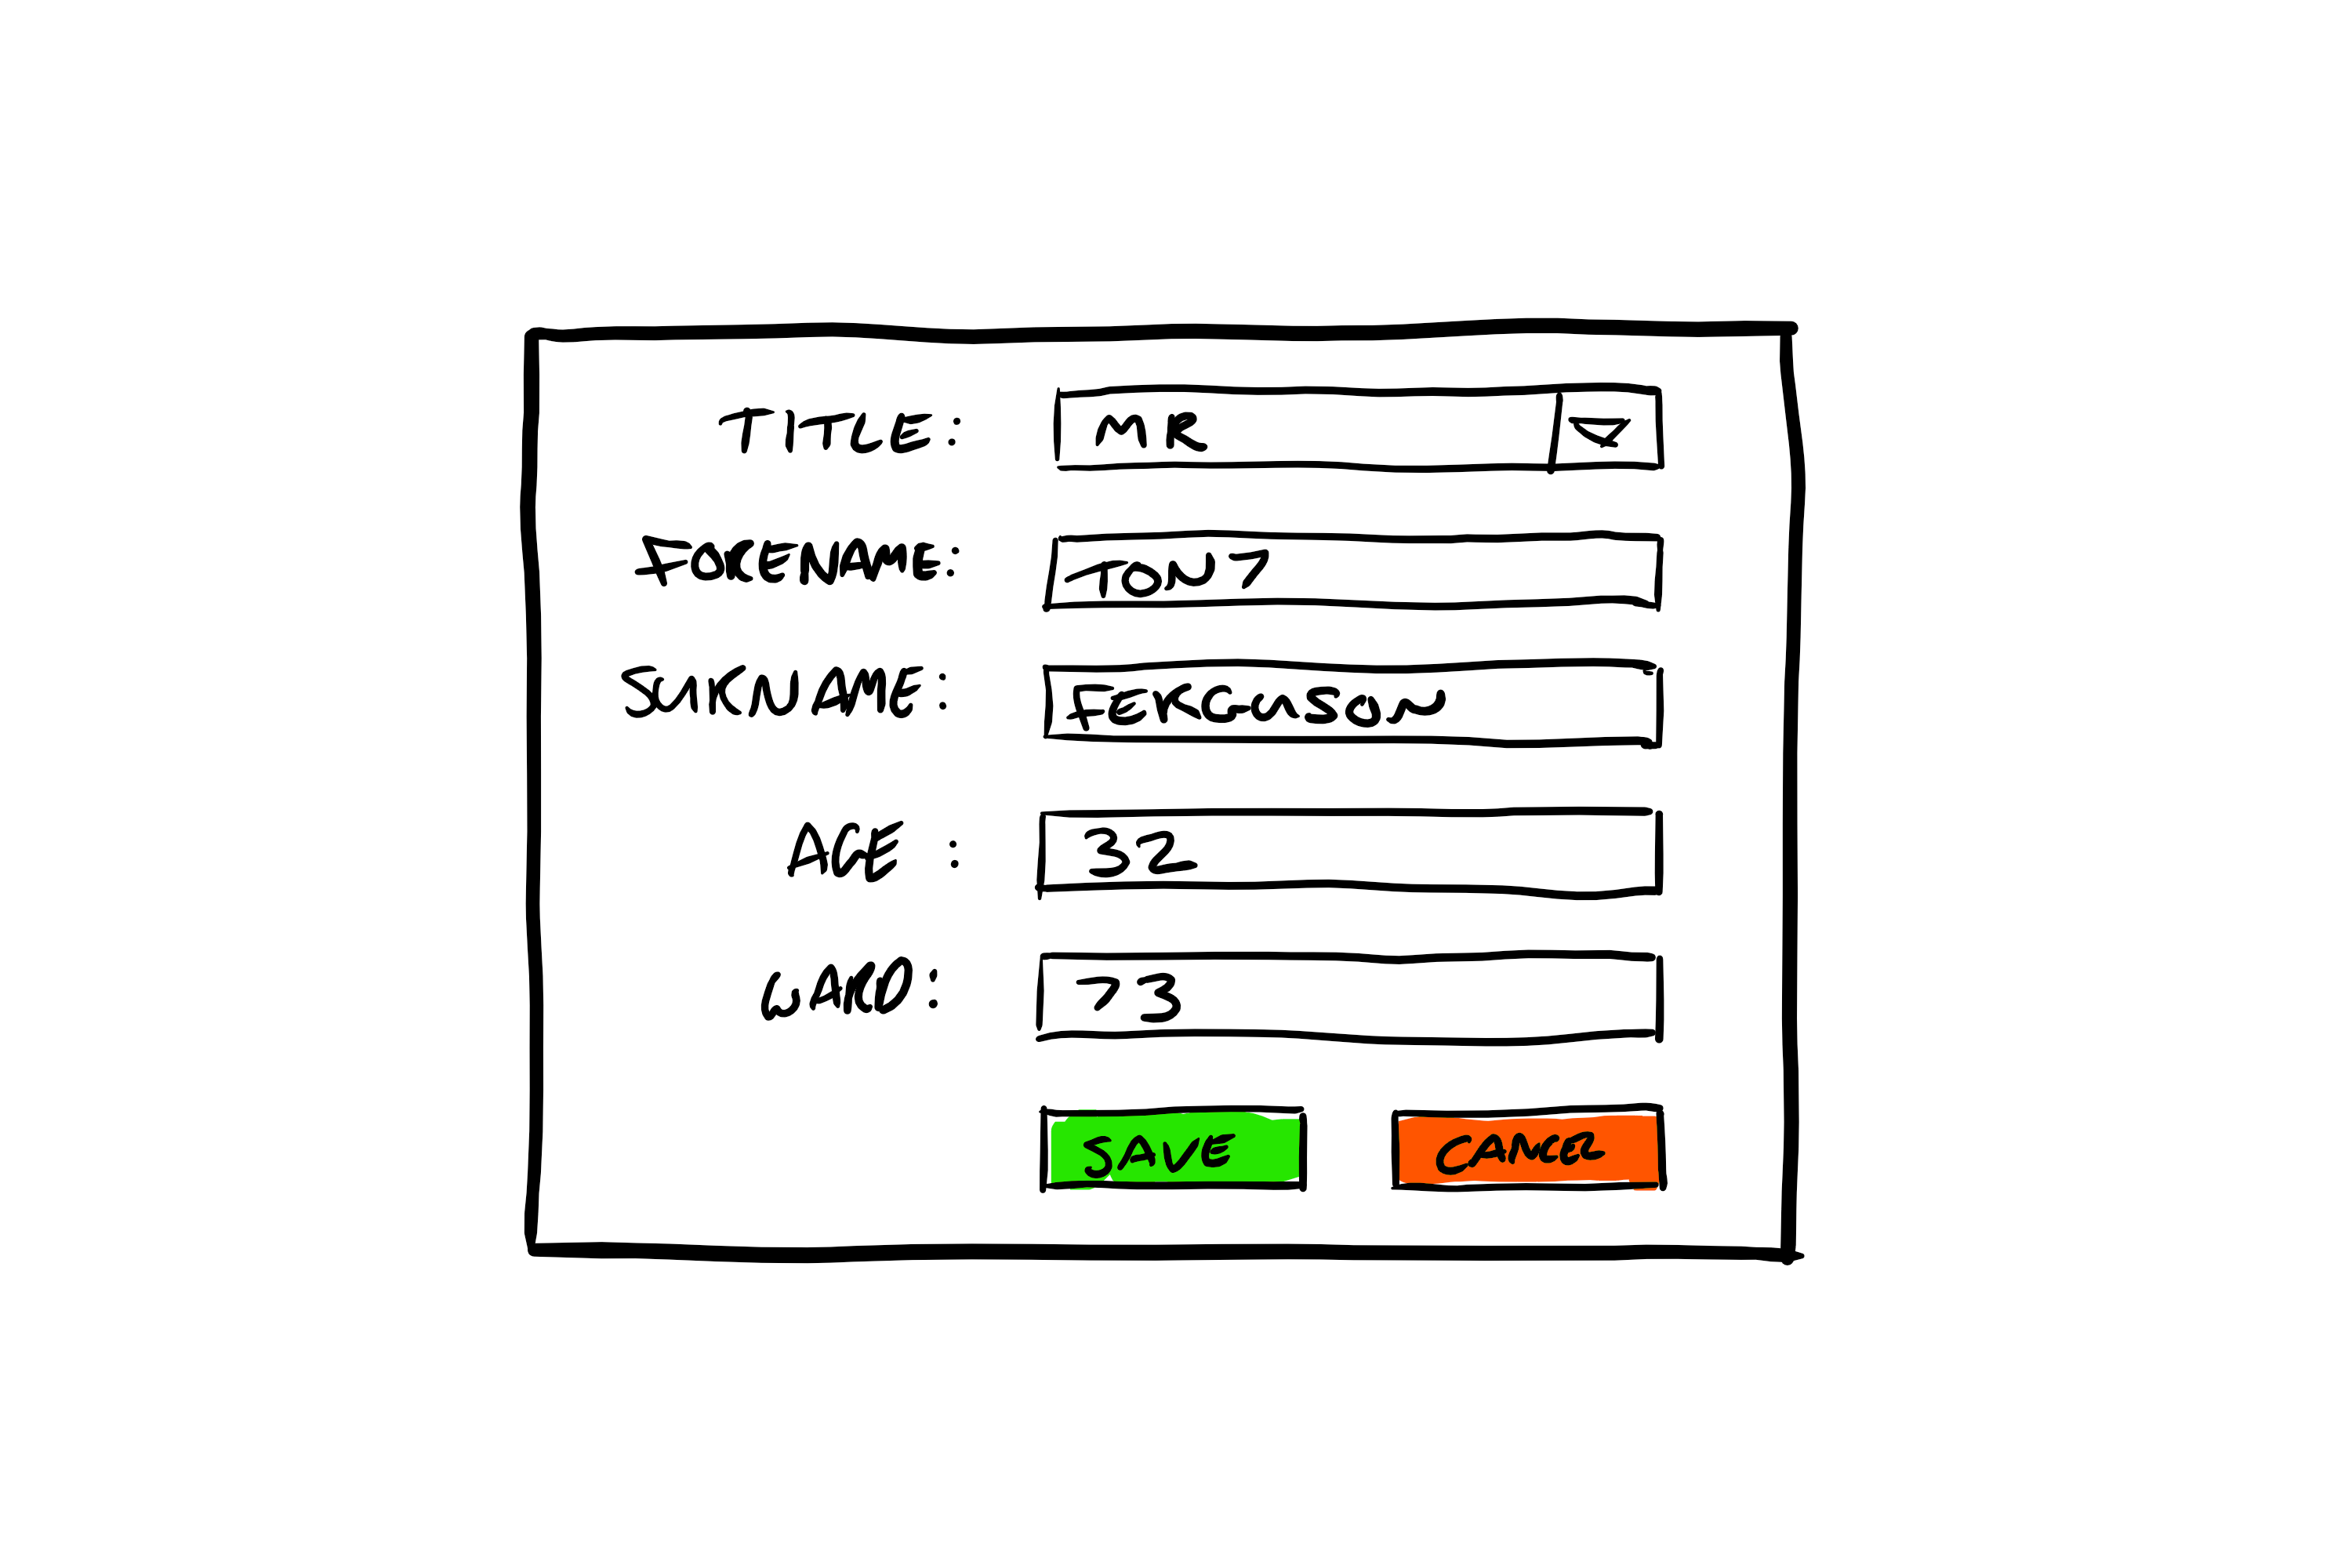 TITLE: MR
FORENAME: TONY
SURNAME: FERGUSON
AGE: 32
WARD: 73
SAVE CANCEL